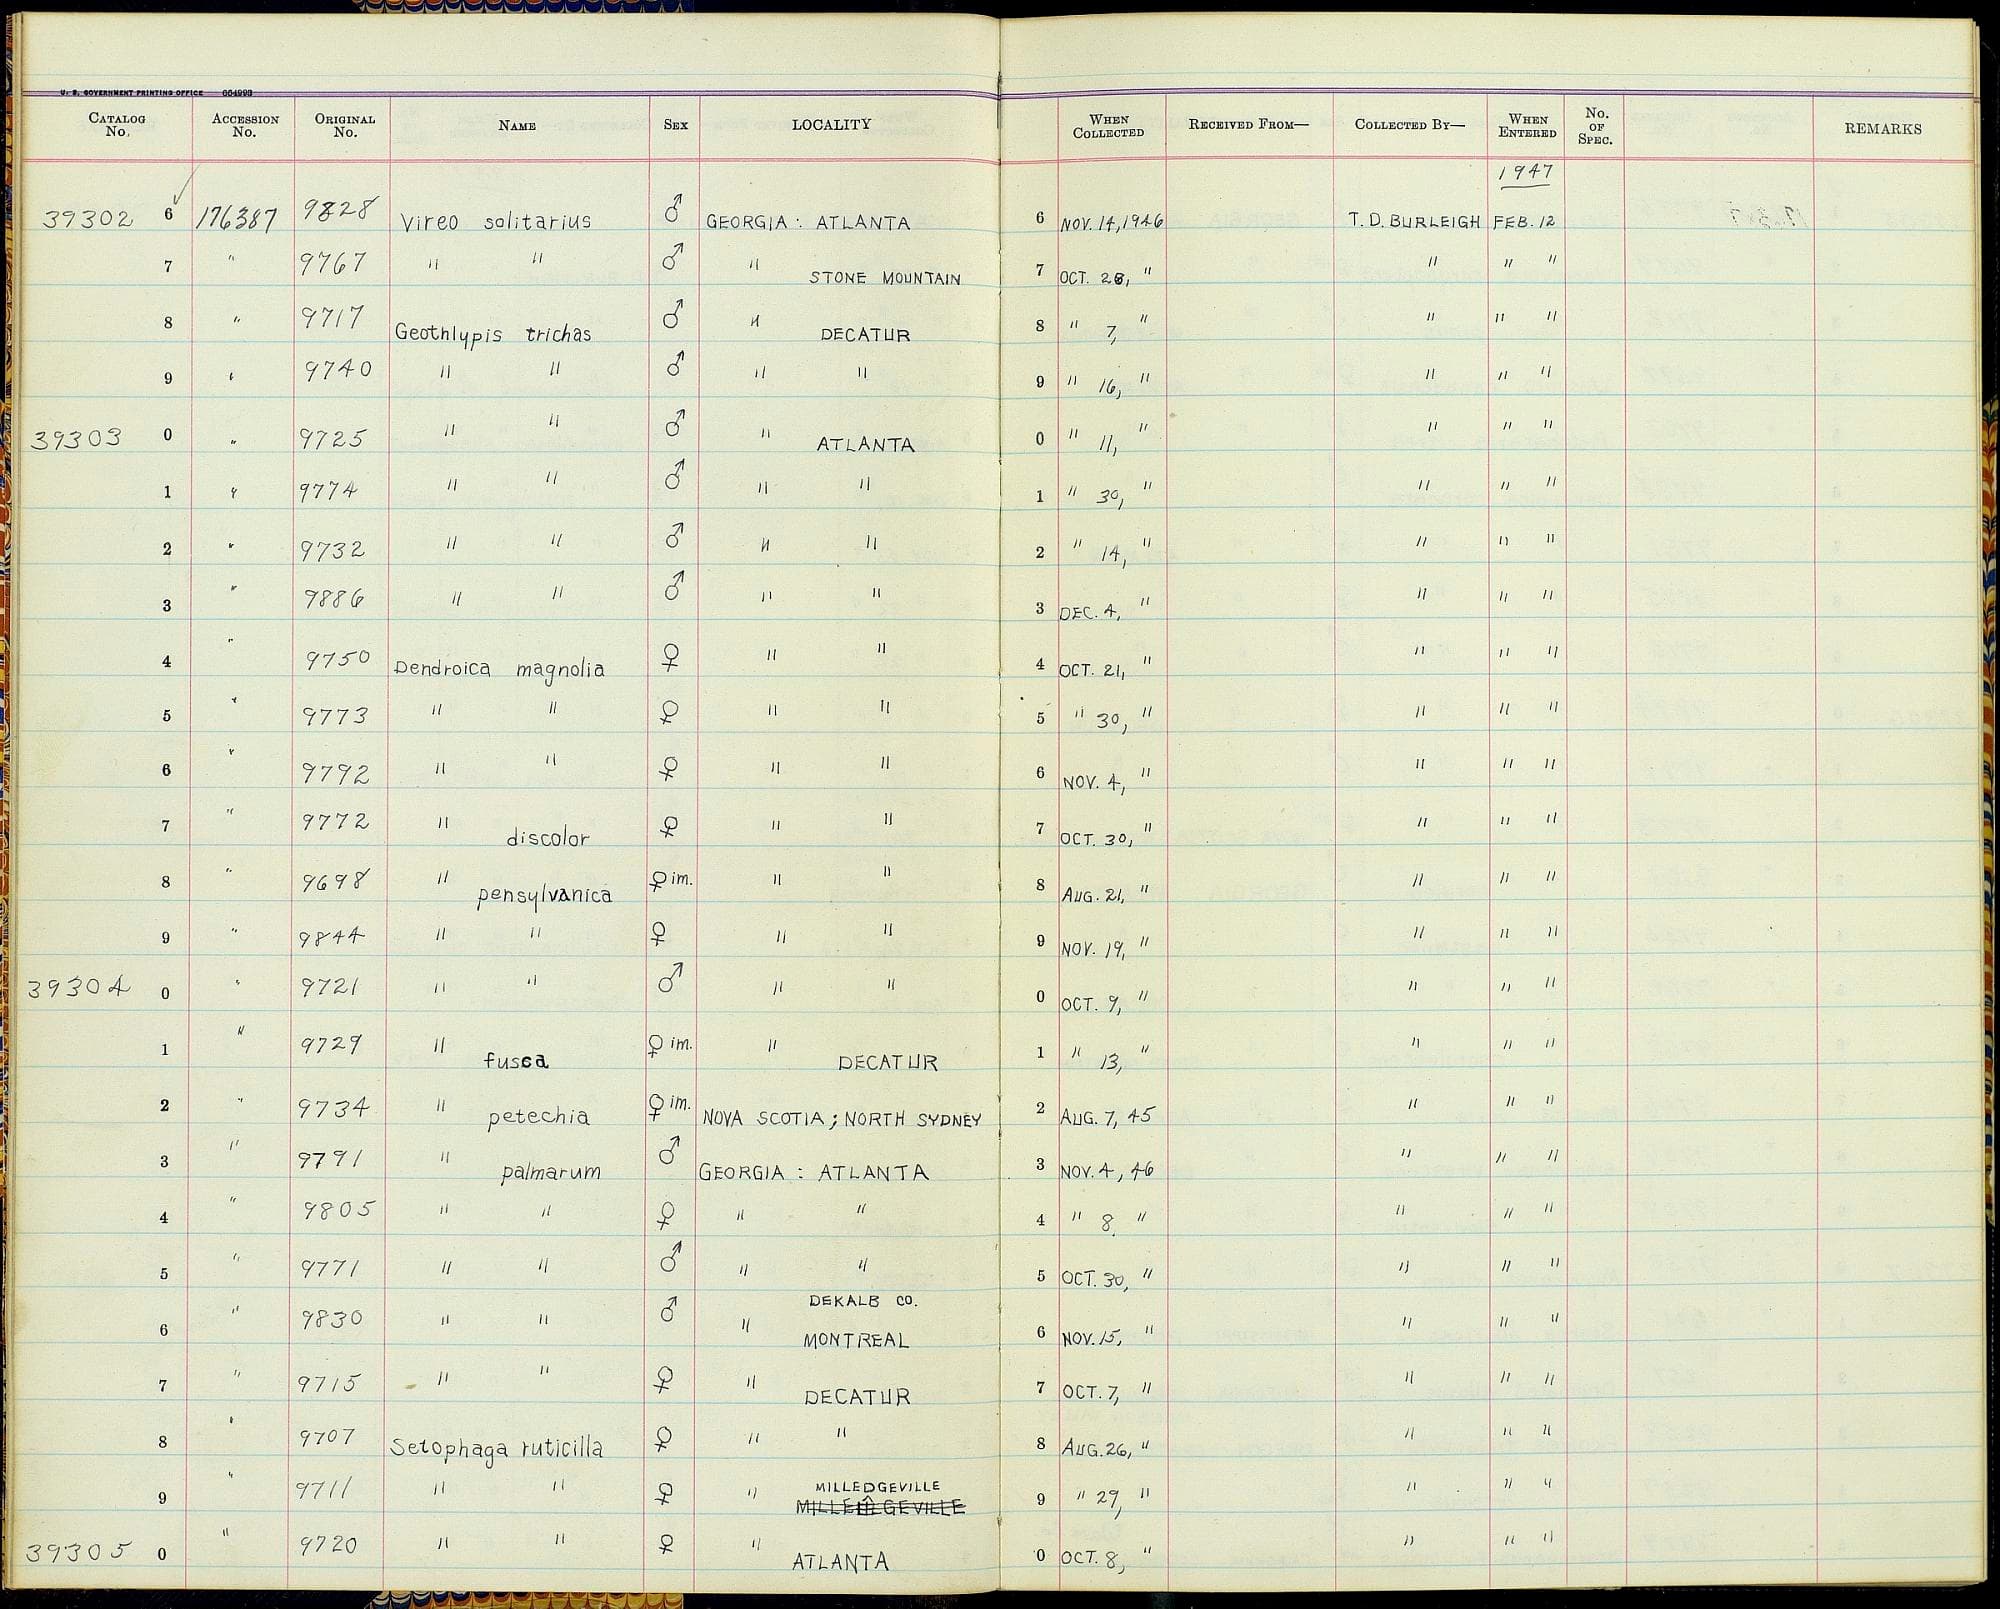 U. S. GOVERNMENT PRINTING OFFICE 664993
CATALOG No. ACCESSION No. ORIGINAL No. NAME SEX LOCALITY WHEN COLLECTED RECEIVED FROM— COLLECTED BY— WHEN ENTERED No. OF SPEC. REMARKS
1947
39302 6 176387 9828 Vireo solitarius ♂ GEORGIA: ATLANTA 6 NOV. 14, 1946 T. D. BURLEIGH FEB. 12
7 " 9767 " " ♂ " STONE MOUNTAIN 7 OCT. 28, " " " "
8 " 9717 Geothlypis trichas ♂ " DECATUR 8 " 7, " " " "
9 " 9740 " " ♂ " " 9 " 16, " " " "
39303 0 " 9725 " " ♂ " ATLANTA 0 " 11, " " " "
1 " 9774 " " ♂ " " 1 " 30, " " " "
2 " 9732 " " ♂ " " 2 " 14, " " " "
3 " 9886 " " ♂ " " 3 DEC. 4, " " " "
4 " 9750 Dendroica magnolia ♀ " " 4 OCT. 21, " " " "
5 " 9773 " " ♀ " " 5 " 30, " " " "
6 " 9792 " " ♀ " " 6 NOV. 4, " " " "
7 " 9772 " discolor ♀ " " 7 OCT. 30, " " " "
8 " 9698 " pensylvanica ♀ im. " " 8 AUG. 21, " " " "
9 " 9844 " " ♀ " " 9 NOV. 19, " " " "
39304 0 " 9721 " " ♂ " " 0 OCT. 9, " " " "
1 " 9729 " fusca ♀ im. " DECATUR 1 " 13, " " " "
2 " 9734 " petechia ♀ im. NOVA SCOTIA; NORTH SYDNEY 2 AUG. 7, 45 " " "
3 " 9791 " palmarum ♂ GEORGIA: ATLANTA 3 NOV. 4, 46 " " "
4 " 9805 " " ♀ " " 4 " 8, " " " "
5 " 9771 " " ♂ " " 5 OCT. 30, " " " "
DEKALB CO.
6 " 9830 " " ♂ " MONTREAL 6 NOV. 15, " " " "
7 " 9715 " " ♀ " DECATUR 7 OCT. 7, " " " "
8 " 9707 Setophaga ruticilla ♀ " " 8 AUG. 26, " " " "
MILLEDGEVILLE
9 " 9711 " " ♀ " 9 " 29, " " " "
39305 0 " 9720 " " ♀ " ATLANTA 0 OCT. 8, " " " "